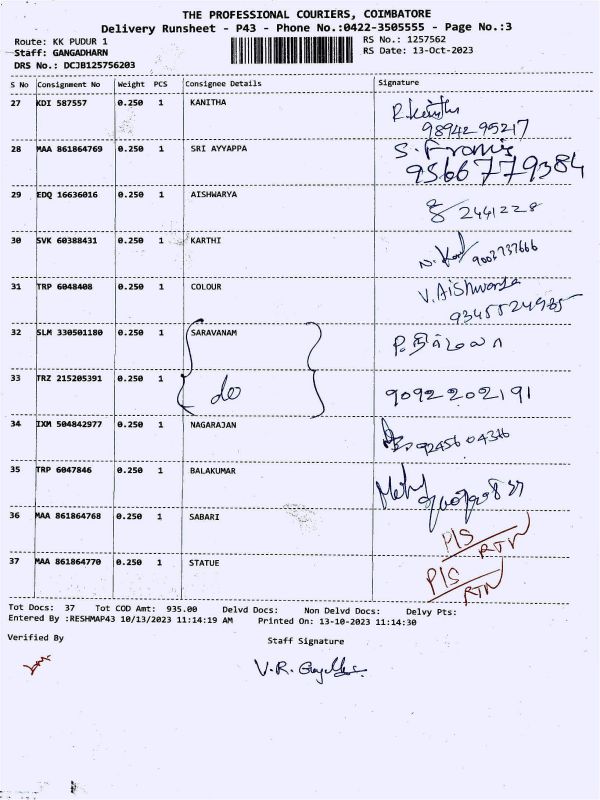 THE PROFESSIONAL COURIERS, COIMBATORE
Delivery Runsheet - P43 - Phone No.:0422-3505555 - Page No.:3
Route: KK PUDUR 1
RS No.: 1257562
Staff: GANGADHARN
RS Date: 13-Oct-2023
DRS No.: DCJB125756203
S No Consignment No Weight PCS Consignee Details Signature
27 KDI 587557 0.250 1 KANITHA
9894295217
28 MAA 861864769 0.250 1 SRI AYYAPPA
9566779384
29 EDQ 16636016 0.250 1 AISHWARYA 2441228
30 SVK 60388431 0.250 1 KARTHI 9003737666
31 TRP 6048408 0.250 1 COLOUR V. Aishwarya
32 SLM 330501180 0.250 1 SARAVANAM
33 TRZ 215205391 0.250 1 do 9092202191
34 IXM 504842977 0.250 1 NAGARAJAN
35 TRP 6047846 0.250 1 BALAKUMAR
36 MAA 861864768 0.250 1 SABARI P/S RTN
37 MAA 861864770 0.250 1 STATUE P/S RTN
Tot Docs: 37 Tot COD Amt: 935.00 Delvd Docs: Non Delvd Docs: Delvy Pts:
Entered By :RESHMAP43 10/13/2023 11:14:19 AM Printed On: 13-10-2023 11:14:30
Verified By
Staff Signature
V.R.